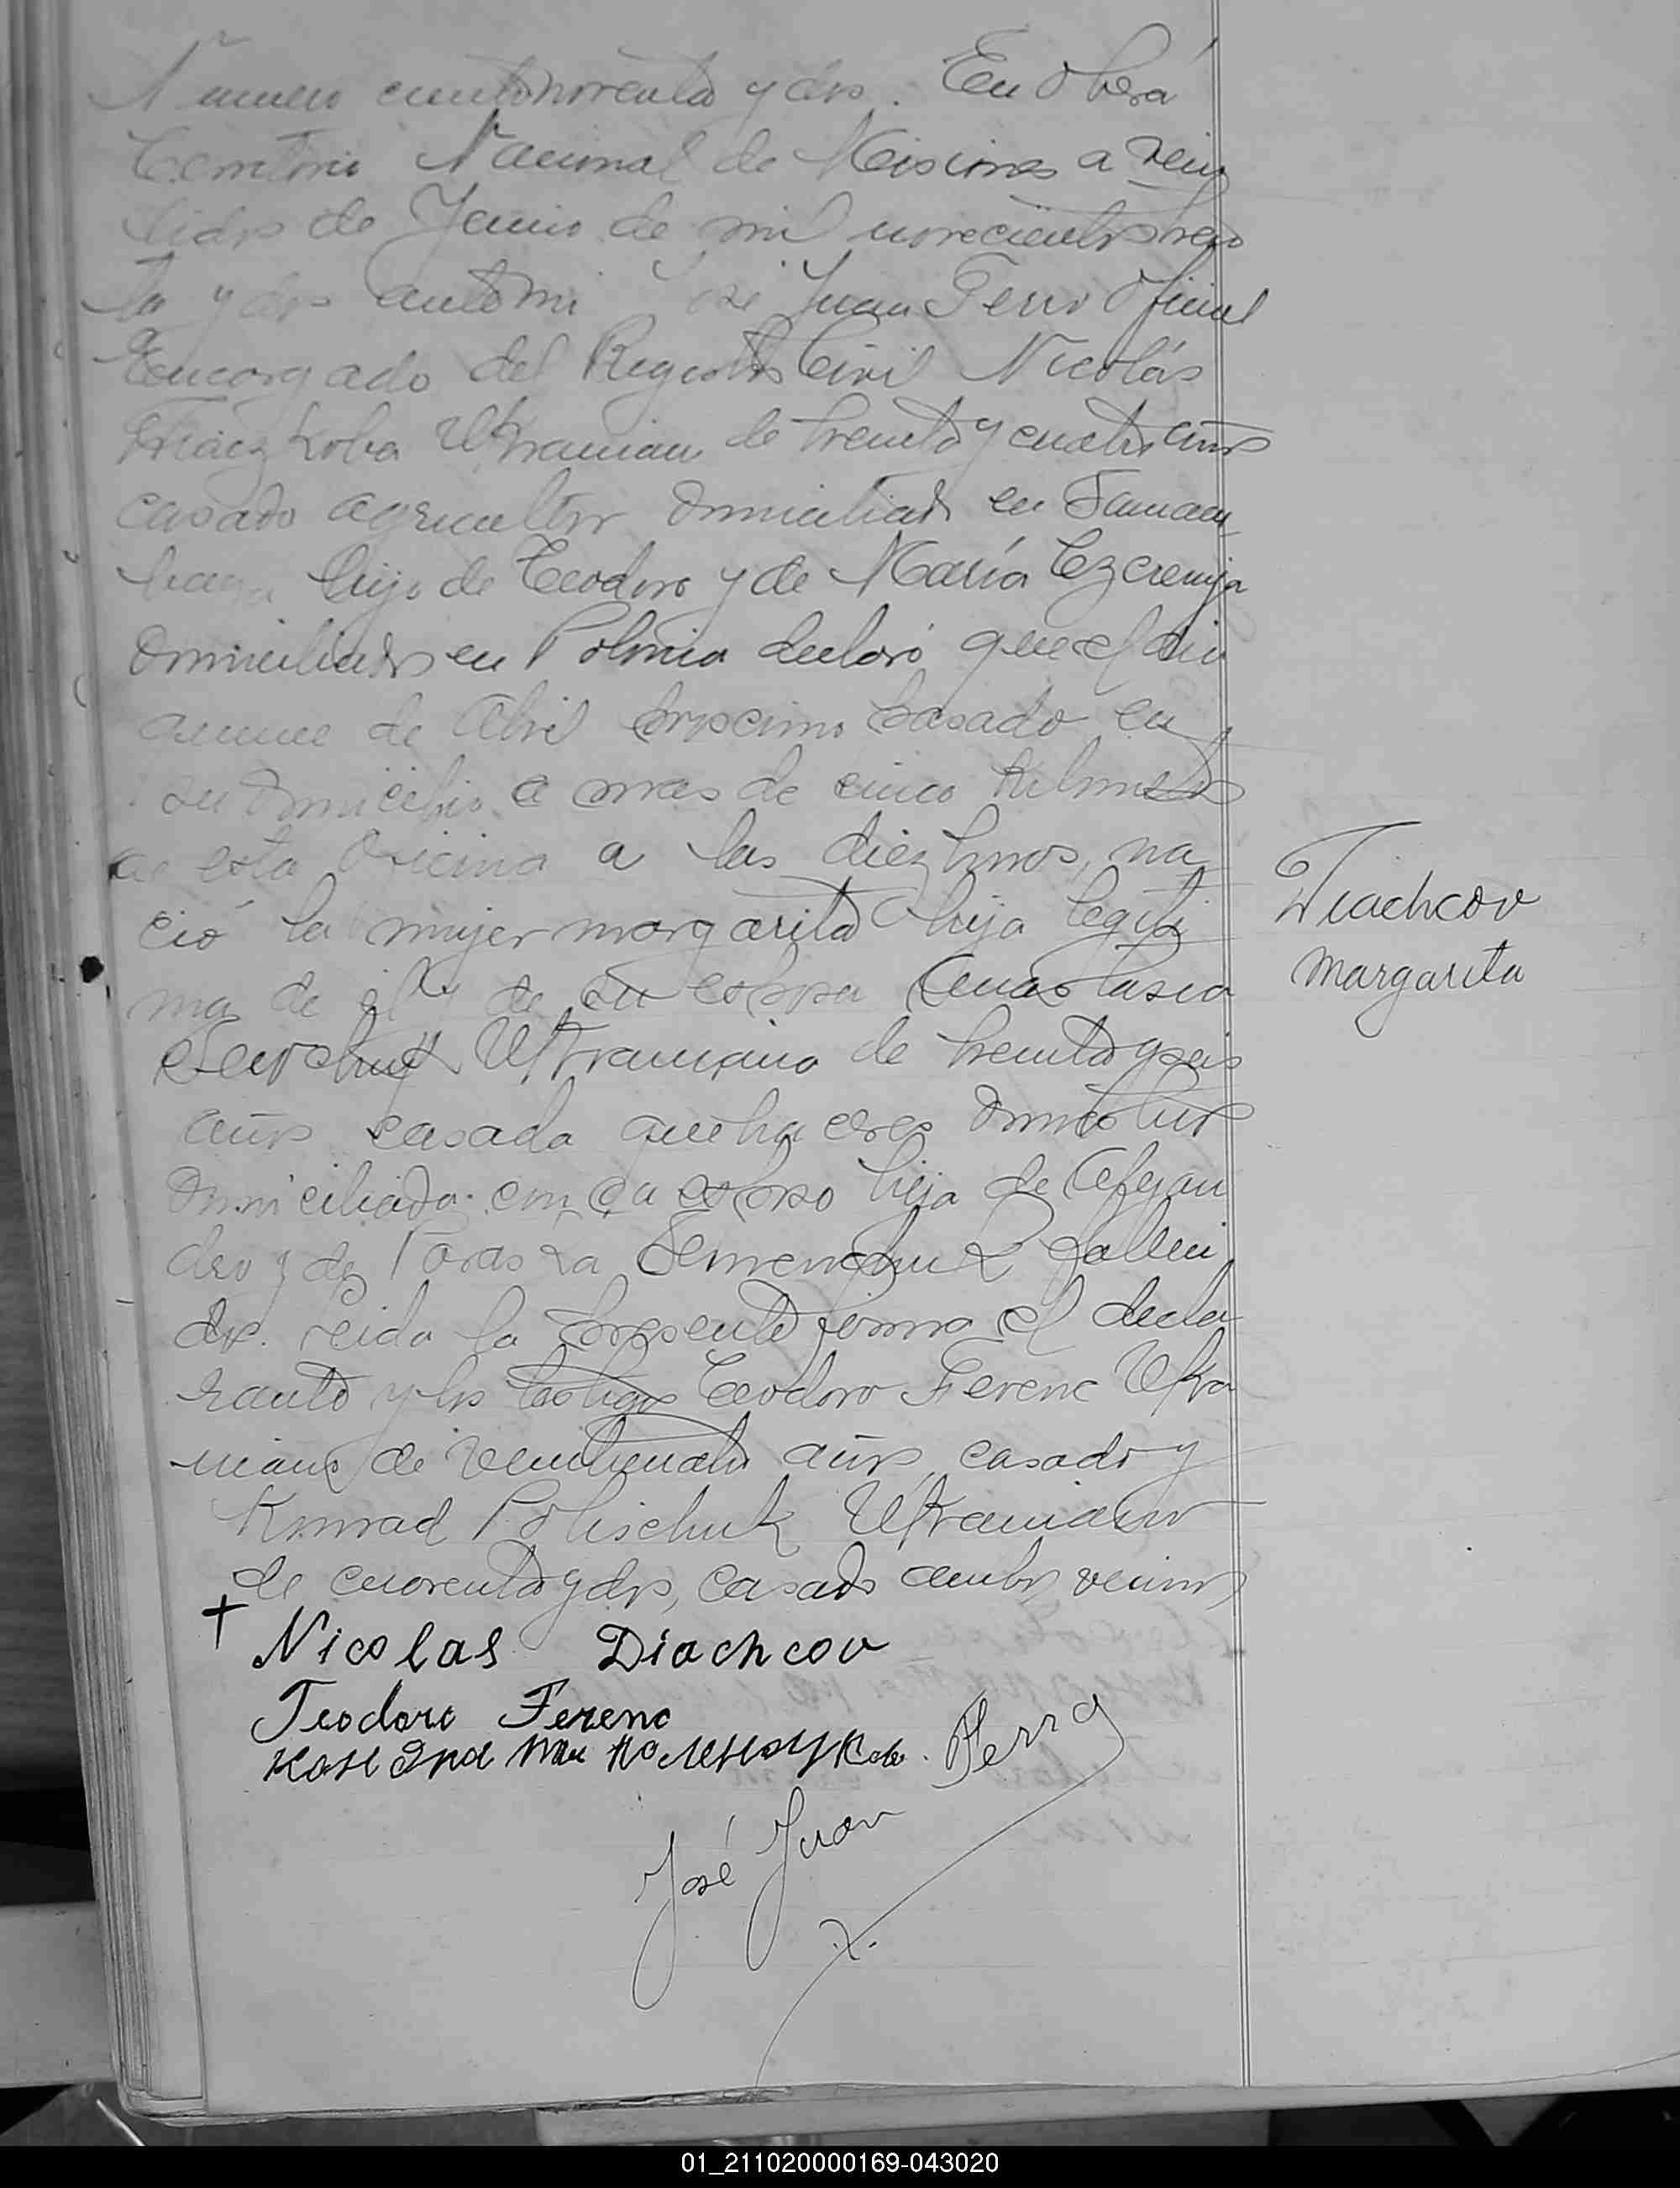 Número ciento noventa y dos. En Oberá
Territorio Nacional de Misiones a vein
tidos de Junio de mil novecientos trein
ta y dos ante mi José Juan Ferro Oficial
Encargado del Registro Civil Nicolás
Ukraniano de treinta y cuatro años
casado agricultor domiciliado en
hijo de Teodoro y de María
domiciliados en Polonia declaró que el dia
quince de Abril proximo pasado en
su domicilio a mas de cinco kilometros
de esta Oficina a las diez horas, na
ció la mujer margarita hija legiti
ma de el y de su esposa Anastasia
Ukraniana de treinta y seis
años casada quehaceres domesticos
domiciliada con su esposo hija de Alejan
dro y de Paraska Semenchuk falleci
dos. Leida la presente firma el decla
rante y los testigos Teodoro Ferenc Ukra
niano de veinticuatro años casado y
Konrad Polischuk Ukraniano
de cuarenta y dos, casado ambos vecinos
Diachcov
Margarita
Nicolas Diachcov
Teodoro Ferenc
José Juan Ferro